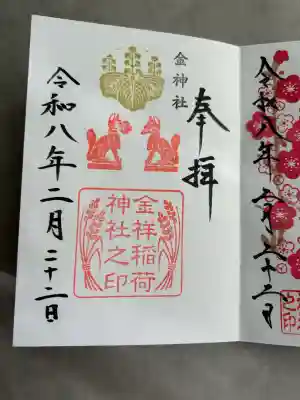 金神社
奉拝
金祥稲荷
神社之印
令和八年二月二十二日
令和八年二月二十二日
之印